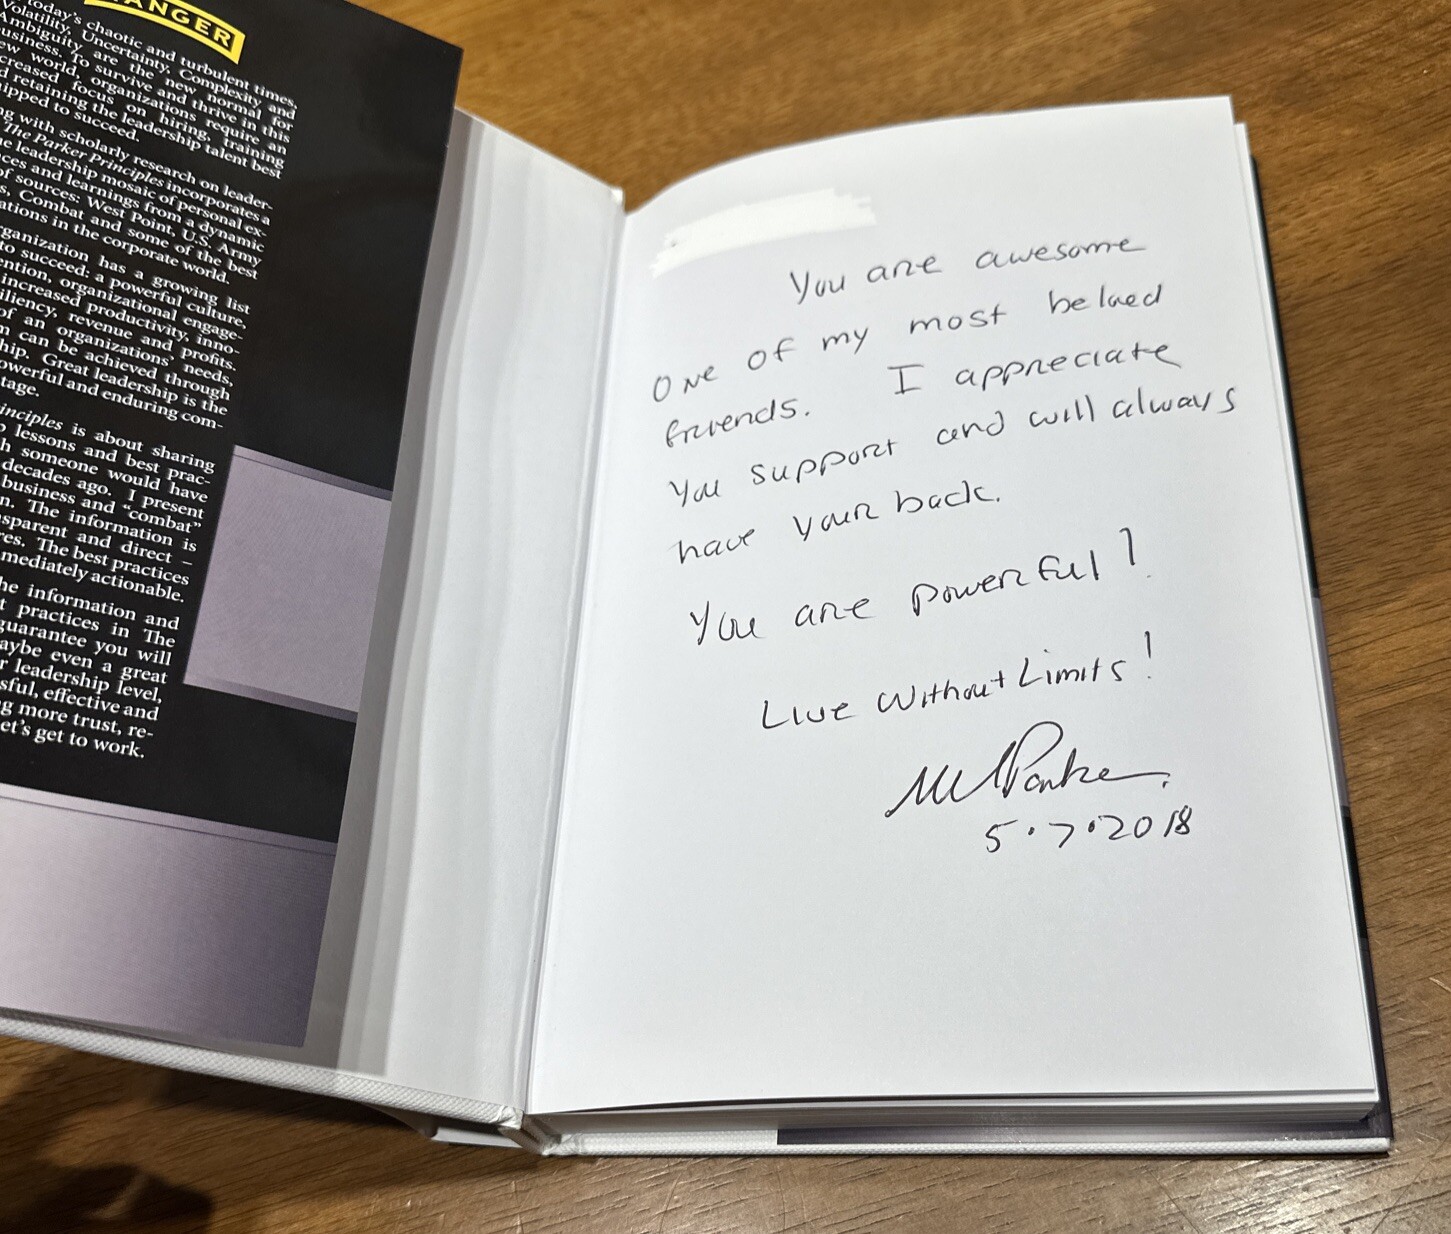 ANGER
today's chaotic and turbulent times,
Volatility, Uncertainty, Complexity and
Ambiguity are the new normal for
usiness. To survive and thrive in this
ew world, organizations require an
creased focus on hiring, training
d retaining the leadership talent best
ipped to succeed.
ng with scholarly research on leader-
The Parker Principles incorporates a
e leadership mosaic of personal ex-
ces and learnings from a dynamic
of sources: West Point, U.S. Army
s, Combat and some of the best
ations in the corporate world.
ganization has a growing list
to succeed: a powerful culture,
ention, organizational engage-
increased productivity, inno-
iliency, revenue and profits.
of an organizations' needs,
n can be achieved through
hip. Great leadership is the
owerful and enduring com-
tage.
inciples is about sharing
lessons and best prac-
h someone would have
decades ago. I present
business and "combat"
n. The information is
sparent and direct –
res. The best practices
mediately actionable.
he information and
t practices in The
guarantee you will
aybe even a great
r leadership level,
sful, effective and
g more trust, re-
et's get to work.
You are awesome
One of my most beloved
friends. I appreciate
you support and will always
have your back.
You are powerful!
Live Without Limits!
Parker
5.7.2018